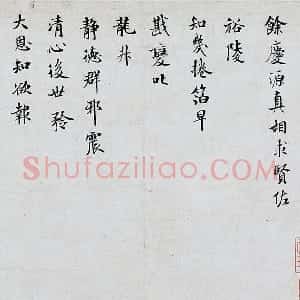 餘慶源真相求賢佐
裕陵
知幾捲箔早
戡變叱
龍升
静德群邪震
清心後世矜
大恩知欲報
Shufaziliao.com